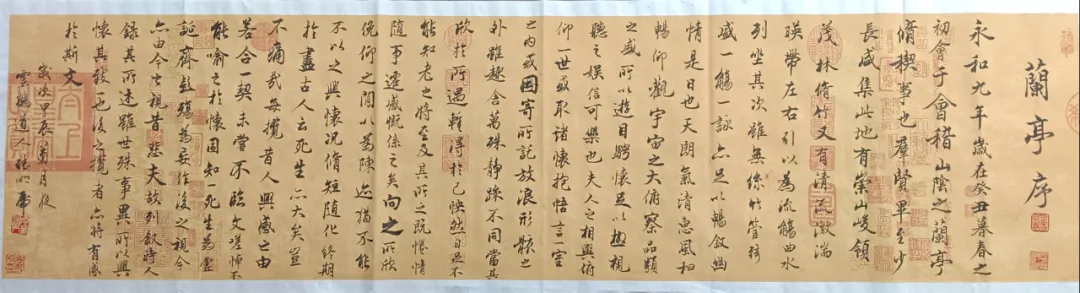 蘭亭序
永和九年歲在癸丑暮春之
初會于會稽山陰之蘭亭
脩禊事也羣賢畢至少
長咸集此地有崇山峻領
茂林脩竹又有清流激湍
暎帶左右引以為流觴曲水
列坐其次雖無絲竹管弦
盛一觴一詠亦足以暢敘幽
情是日也天朗氣清惠風和
暢仰觀宇宙之大俯察品類
之盛所以遊目騁懷足以極視
聽之娛信可樂也夫人之相與俯
仰一世或取諸懷抱悟言一室
之內或因寄所託放浪形骸之
外雖趣舍萬殊靜躁不同當其
欣於所遇暫得於己怏然自足不
能知老之將至及其所之既惓情
隨事遷感慨係之矣向之所欣
俛仰之間以為陳迹猶不能
不以之興懷況脩短隨化終期
於盡古人云死生亦大矣豈
不痛哉每攬昔人興感之由
若合一契未嘗不臨文嗟悼不
能喻之於懷固知一死生為虛
誕齊彭殤為妄作後之視今
亦由今之視昔悲夫故列敘時人
錄其所述雖世殊事異所以興
懷其致一也後之攬者亦將有感
於斯文
歲次甲辰菊月
道人